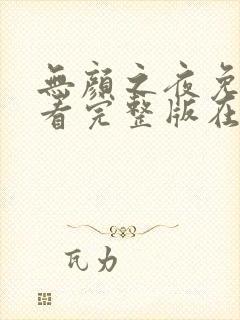 無顏之夜免
看完整版在
瓦力